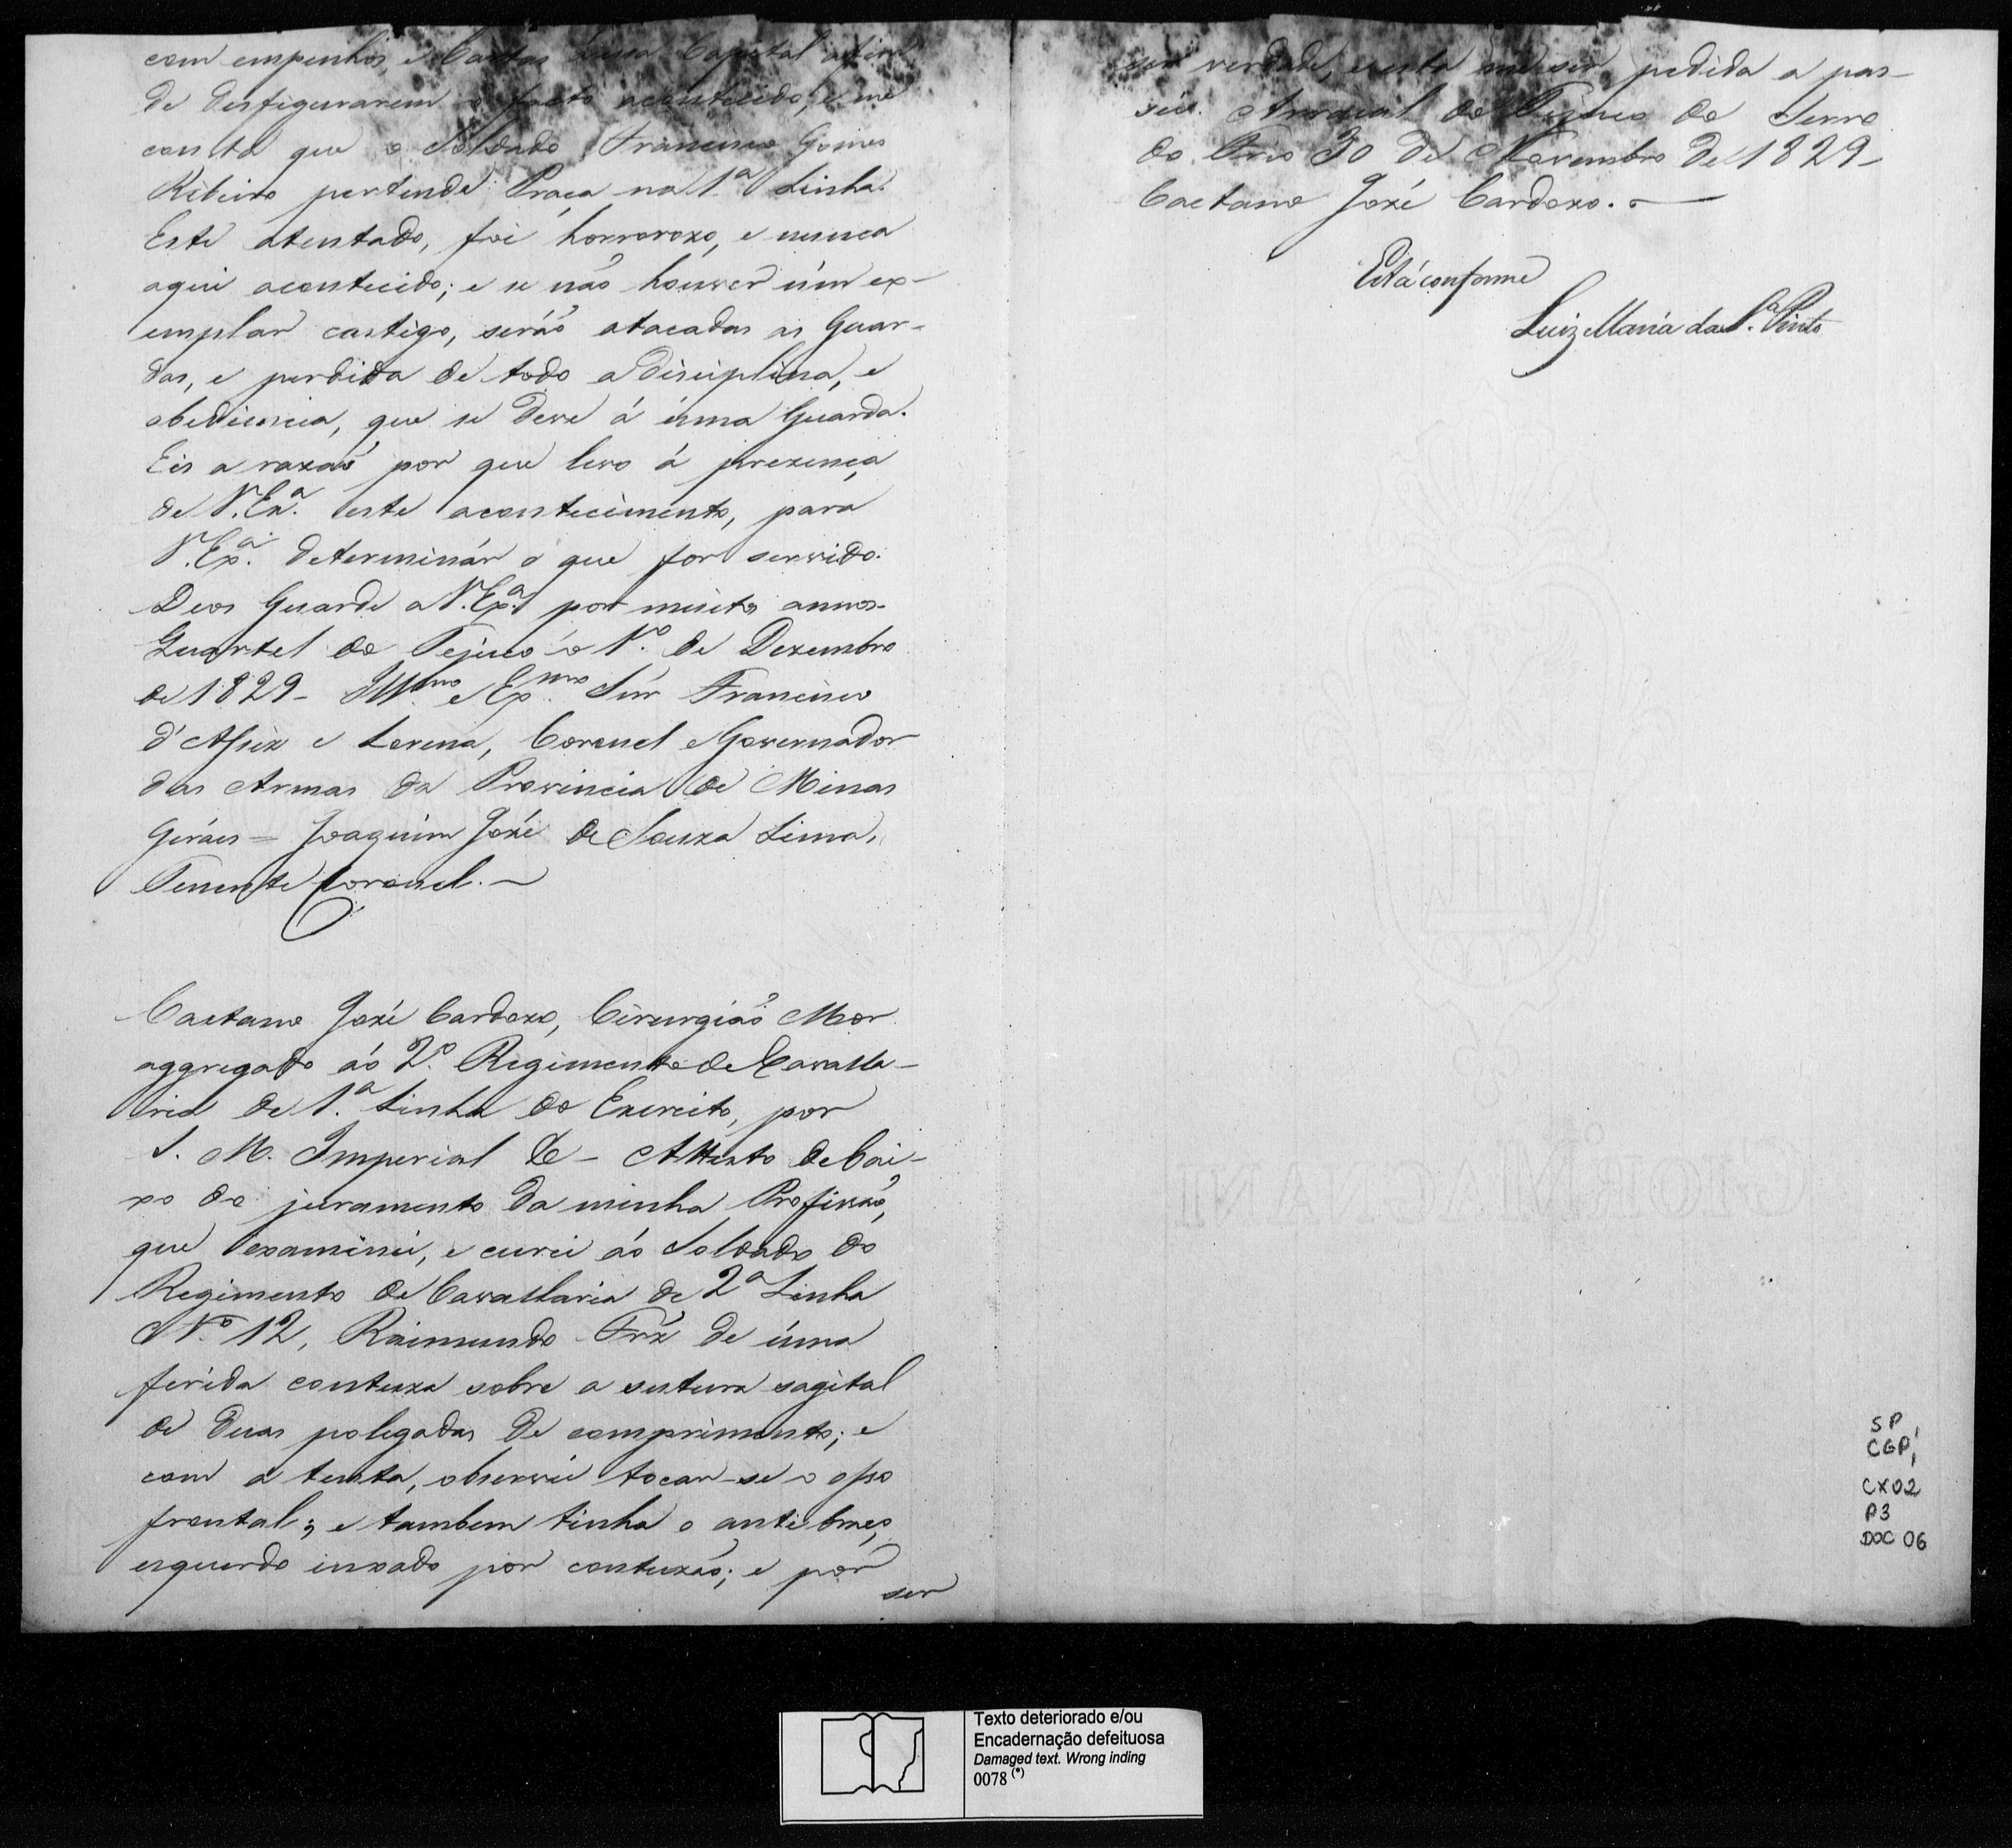 com empenhos, e Cartas Capital afim
de desfigurarem o facto acontecido, e me
consta que o Soldado Francisco Gomes
Ribeiro pertende Praça na 1.ª Linha.
Este atentado, foi horrorozo, e nunca
aqui acontecido; e se não houver úm ex-
emplar castigo, serão atacadas as Guar-
das, e perdida de todo a disciplina, e
obediencia, que se deve á úma Guarda.
Eis a razão por que levo á prezença
de V. Ex.ª este acontecimento, para
V. Ex.ª determinár o que for servido.
Deos Guarde a V. Ex.ª por muitos annos.
Quartel do Tejuco o 1.º de Dezembro
de 1829 - Ill.mo e Ex.mo Sñr Francisco
d'Assiz e Lorena, Coronel e Governador
das Armas da Provincia de Minas
Geráes = Joaquim José de Souza Lima,
Tenente Coronel. -
Caetano José Cardozo, Cirurgião Mor
aggregado áo 2.º Regimento de Cavalla-
ria de 1.ª Linha do Exercito, por
S. M. Imperial &c - Attesto debai-
xo do juramento da minha Profissão,
que examinei, e curei áo Soldado do
Regimento de Cavallaria de 2ª Linha
N.º 12, Raimundo Frz de úma
ferida contuza sobre a sutura sagital
de duas polegadas de comprimento; e
com a tenta, observei tocar-se o osso
frontal; e tambem tinha o antebraço
esquerdo inxado por contuzão; e por
ser
ser verdade, e esta me ser pedida a pas-
sei. Arraial do Tejuco do Serro
do Frio 30 de Novembro de 1829 -
Caetano José Cardozo. -
Está conforme
Luiz Maria da S.ª Pinto
GIOR MAGNANI
SP,
CGP,
CX02
P3
DOC 06
Texto deteriorado e/ou
Encadernação defeituosa
Damaged text. Wrong inding
0078 (*)